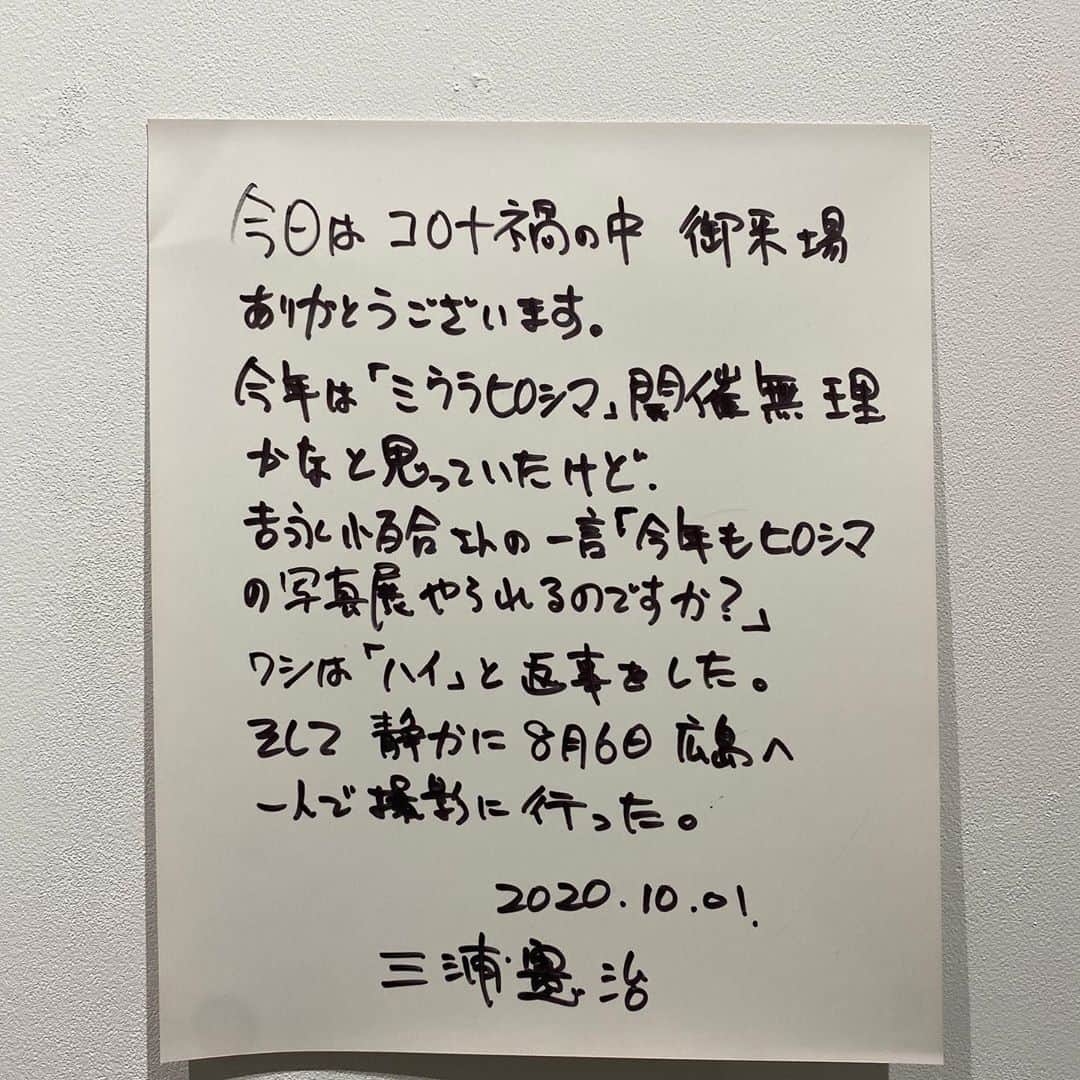 今日は コロナ禍の中 御来場
ありがとうございます。
今年は「ミウラヒロシマ」開催無理
かなと思っていたけど、
吉永小百合さんの一言「今年もヒロシマ
の写真展やられるのですか?」
ワシは「ハイ」と返事をした。
そして 静かに8月6日 広島へ
一人で撮影に行った。
2020.10.01.
三浦憲治